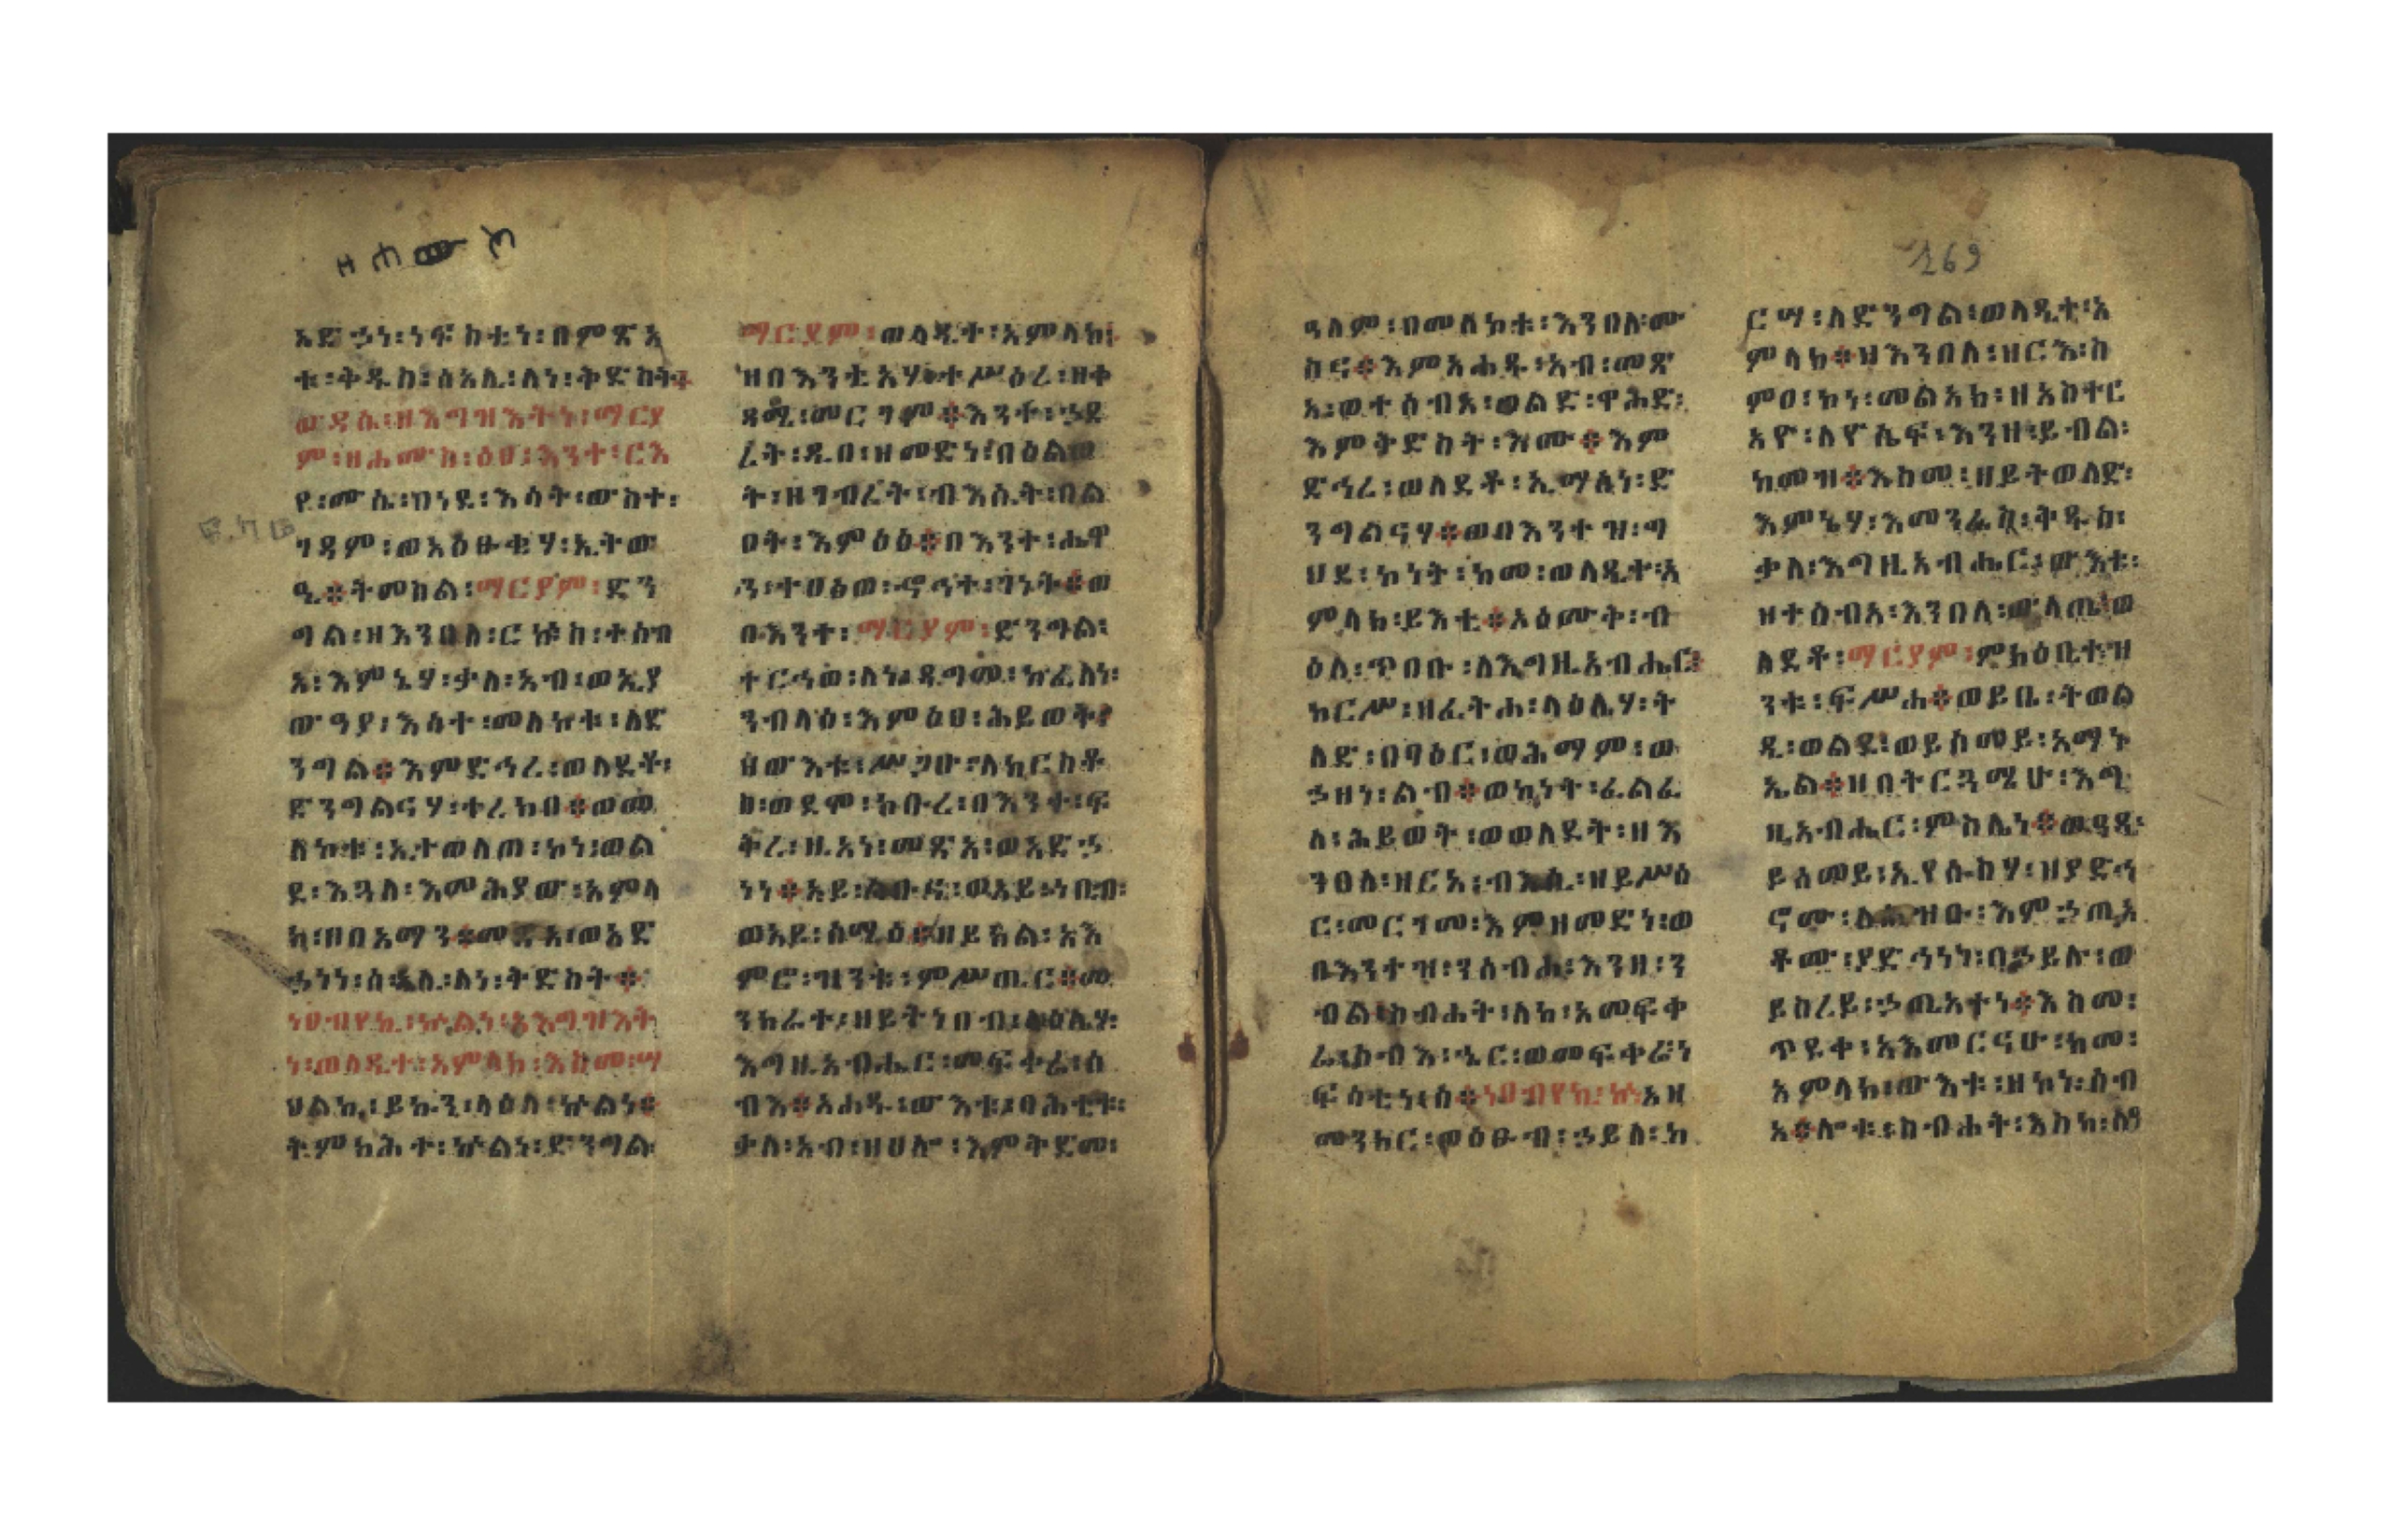 ዘሐሙስ
አድኃነ፡ነፍስቲነ፡በምጽአ
ቱ፡ቅዱስ፡ሰአሊ፡ለነ፡ቅድስት፡
ውዳሴ፡ዘእግዝእትነ፡ማርያ
ም፡ዘሐሙስ፡ዕፀ፡እንተ፡ርእ
የ፡ሙሴ፡በነደ፡እሳት፡ውስተ፡
ገዳም፡ወአዕፁቂሃ፡ኢትው
ዒ፨ትመስል፡ማርያም፡ድን
ግል፡ዘእንበለ፡ርኵስ፡ተሰብ
አ፡እምኔሃ፡ቃለ፡አብ፡ወኢያ
ውዓያ፡እሳተ፡መለኮቱ፡ለድ
ንግል፨እምድኅረ፡ወለደቶ፡
ድንግልናሃ፡ተረክበ፨ወመ
ለኮቱ፡ኢተወለጠ፡ኮነ፡ወል
ደ፡እጓለ፡እመሕያው፡አምላ
ክ፡ዘበአማን፨መጽአ፡ወአድ
ኃነነ፡ሰአሊ፡ለነ፡ቅድስት፨
ነዐብየኪ፡ኵልነ፡ኦእግዝእት
ነ፡ወላዲተ፡አምላክ፡እስመ፡ሣ
ህልኪ፡ይኩን፡ላዕለ፡ኵልነ፨
ትምክሕተ፡ኵልነ፡ድንግል
ማርያም፡ወላዲተ፡አምላክ፡
ዘበእንቲአሃ፡ተሥዕረ፡ዘቀ
ዳሚ፡መርገም፨እንተ፡ኃደ
ረት፡ዲበ፡ዘመድነ፡በዕልወ
ት፡ዘገብረት፡ብእሲት፡በል
ዐት፡እምዕፅ፨በእንተ፡ሔዋ
ን፡ተዐፅወ፡ኆኅተ፡ገነት፨ወ
በእንተ፡ማርያም፡ድንግል፡
ተርኅወ፡ለነ፡ዳግመ፡ከፈለነ፡
ንብላዕ፡እምዕፀ፡ሕይወት፡
ዘውእቱ፡ሥጋሁ፡ለክርስቶ
ስ፡ወደም፡ክቡረ፡በእንተ፡ፍ
ቅረ፡ዚአነ፡መጽአ፡ወአድኃ
ነነ፨አይ፡ልቡና፡ወአይ፡ነቢብ፡
ወአይ፡ሰሚዕ፨ዘይክል፡አእ
ምሮ፡ዝንቱ፡ምሥጢር፨መ
ንክረተ፡ዘይትነበብ፡ላዕሌሃ፡
እግዚአብሔር፡መፍቀሬ፡ሰ
ብእ፨አሐዱ፡ውእቱ፡ባሕቲቱ፡
ቃለ፡አብ፡ዘሀሎ፡እምቅድመ፡
169
ዓለም፡በመለኮቱ፡እንበለ፡ሙ
ስና፨እምአሐዱ፡አብ፡መጽ
አ፡ወተሰብአ፡ወልድ፡ዋሕድ፡
እምቅድስት፡እሙ፨እም
ድኅረ፡ወለደቶ፡ኢማሰነ፡ድ
ንግልናሃ፨ወበእንተዝ፡ግ
ህደ፡ኮነት፡ከመ፡ወላዲተ፡አ
ምላክ፡ይእቲ፨አዕሙቅ፡ብ
ዕለ፡ጥበቡ፡ለእግዚአብሔር፡
ከርሥ፡ዘፈትሐ፡ላዕሌሃ፡ት
ለድ፡በፃዕር፡ወሕማም፡ወ
ኃዘነ፡ልብ፨ወኮነት፡ፈልፈ
ለ፡ሕይወት፡ወወለደት፡ዘእ
ንበለ፡ዘርአ፡ብእሲ፡ዘይሥዕ
ር፡መርገመ፡እምዘመድነ፡ወ
በእንተዝ፡ንሰብሕ፡እንዘ፡ን
ብል፡ስብሐት፡ለከ፡አመፍቀ
ሬ፡ሰብእ፡ኄር፡ወመፍቀሬ፡ነ
ፍሳቲነ፡ሰ፨ነዐብየኪ፡ኵ፡አዝ
መንክር፡ወዕፁብ፡ኃይለ፡ከ
ርሣ፡ለድንግል፡ወላዲተ፡አ
ምላክ፨ዘእንበለ፡ዘርእ፡ስ
ምዐ፡ኮነ፡መልአክ፡ዘአስተር
አዮ፡ለዮሴፍ፡እንዘ፡ይብል፡
ከመዝ፨እስመ፡ዘይትወለድ፡
እምኔሃ፡እመንፈስ፡ቅዱስ፡
ቃለ፡እግዚአብሔር፡ውእቱ፡
ዘተሰብአ፡እንበለ፡ውላጤ፡ወ
ለደቶ፡ማርያም፡ምክዕቢተ፡ዝ
ንቱ፡ፍሥሐ፨ወይቤ፡ትወል
ዲ፡ወልደ፡ወይሰመይ፡አማኑ
ኤል፨ዘበትርጓሜሁ፡እግ
ዚአብሔር፡ምስሌነ፨ወዓዲ፡
ይሰመይ፡ኢየሱስሃ፡ዝያድኅ
ኖሙ፡ለሕዝቡ፡እምኃጢአ
ቶሙ፡ያድኅነነ፡በኃይሉ፡ወ
ይስረይ፡ኃጢአተነ፨እስመ፡
ጥዩቀ፡አእመርናሁ፡ከመ፡
አምላክ፡ውእቱ፡ዘኮነ፡ሰብ
አ፨ሎቱ፡ስብሐት፡እስከ፡ለዓ